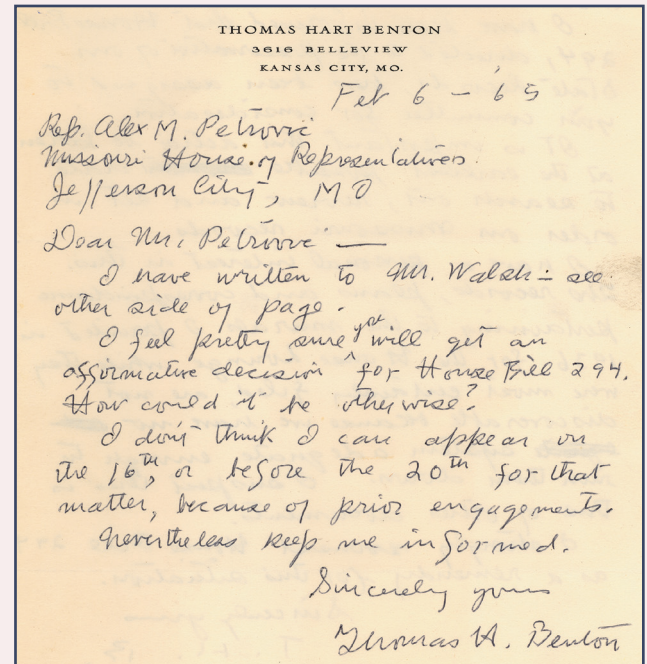 THOMAS HART BENTON
3616 BELLEVIEW
KANSAS CITY, MO.
Feb 6 - '65
Rep. Alex M. Petrovic
Missouri House of Representatives
Jefferson City, MO
Dear Mr. Petrovic —
I have written to Mr. Walsh - see
other side of page.
I feel pretty sure yst will get an
affirmative decision ^ for House Bill 294.
How could it be otherwise?
I don't think I can appear on
the 16th, or before the 20th for that
matter, because of prior engagements.
Nevertheless keep me informed.
Sincerely yours
Thomas H. Benton